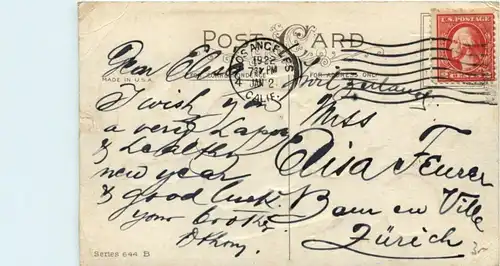 POST CARD
FOR CORRESPONDENCE
FOR ADDRESS ONLY
MADE IN U.S.A.
LOS ANGELES
1922
PM
JAN 2
CALIF.
U.S. POSTAGE
CENTS
Dear Elisa
I wish you
a very happy
& healthy
new year
& good luck
your brother
Switzerland
Miss
Elisa Feurer
Bau en Ville
Zürich
Series 644 B